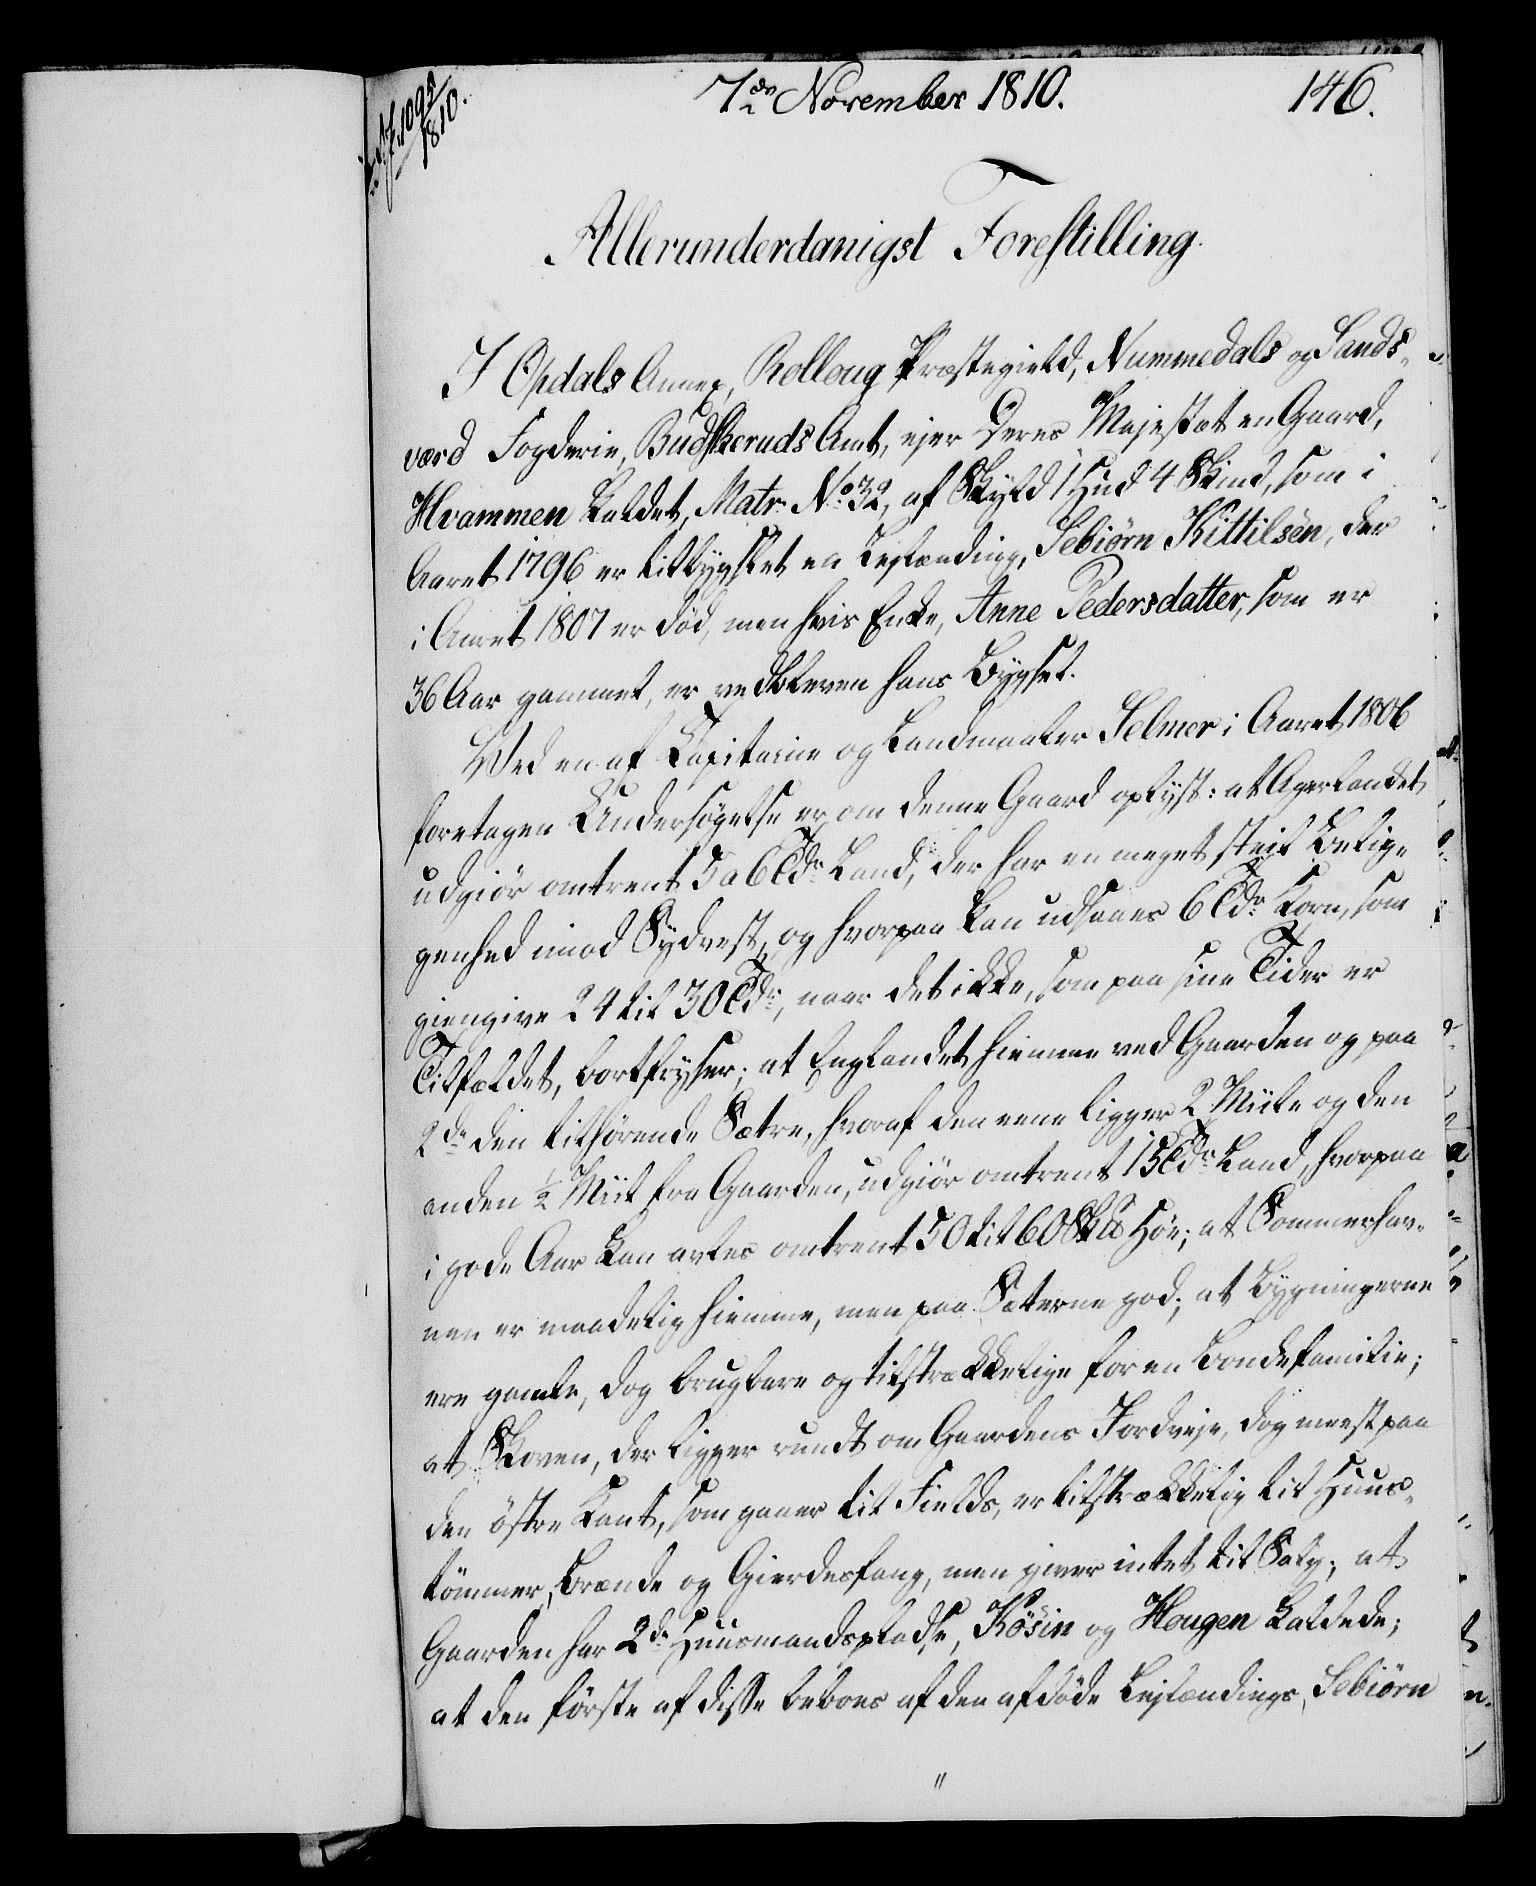 7de November 1810.
146.
1095/1810.
Allerunderdanigst Forestilling.
I Opdals Annex, Rolloug Præstegield, Nummedals og Sands-
værd Fogderie, Budskeruds Amt, ejer Deres Majestæt en Gaard,
Hvammen kaldet, Matr. No. 32, af Skyld 1 Hud 4 Skind, som i
Aaret 1796 er tilbygslet en Leylænding, Sebiörn Kittilsen, der
i Aaret 1807 er död, men hvis Enke, Anne Pedersdatter, som er
36 Aar gammel, er vedbleven hans Bygsel.
Ved en af Capitaine og Landmaaler Selmer i Aaret 1806
foretagen Undersögelse er om denne Gaard oplyst: at Agerlandet
udgiör omtrent 5 a 6 Tdr. Land, der har en meget steil Belig-
genhed imod Sydvest, og hvorpaa kan udsaaes 6 Tdr. Korn, som
giengive 24 til 30 Tdr., naar det ikke, som paa sine Tider er
Tilfældet, bortfryser; at Englandet hiemme ved Gaarden og paa
2de den tilhörende Sætre, hvoraf den eene ligger 2 Miile og den
anden ½ Miil fra Gaarden, udgiör omtrent 15 Tdr. Land, hvorpaa
i gode Aar kan avles omtrent 50 til 60 Skld Höe; at Sommerhav-
nen er maadelig hiemme, men paa Sæterne god; at Bygningerne
ere gamle, dog brugbare og tilstrækkelige for en Bondefamilie;
at Skoven, der ligger rundt om Gaardens Jordveje, dog meest paa
den östre Kant, som gaaer til Fields, er tilstrækkelig til Huus-
tömmer, Brænde og Gierdesfang, men giver intet til Salg; at
Gaarden har 2de Huusmandspladse, Kösin og Hougen kaldede;
at den förste af disse beboes af den afdöde Leylændings, Sebiörn